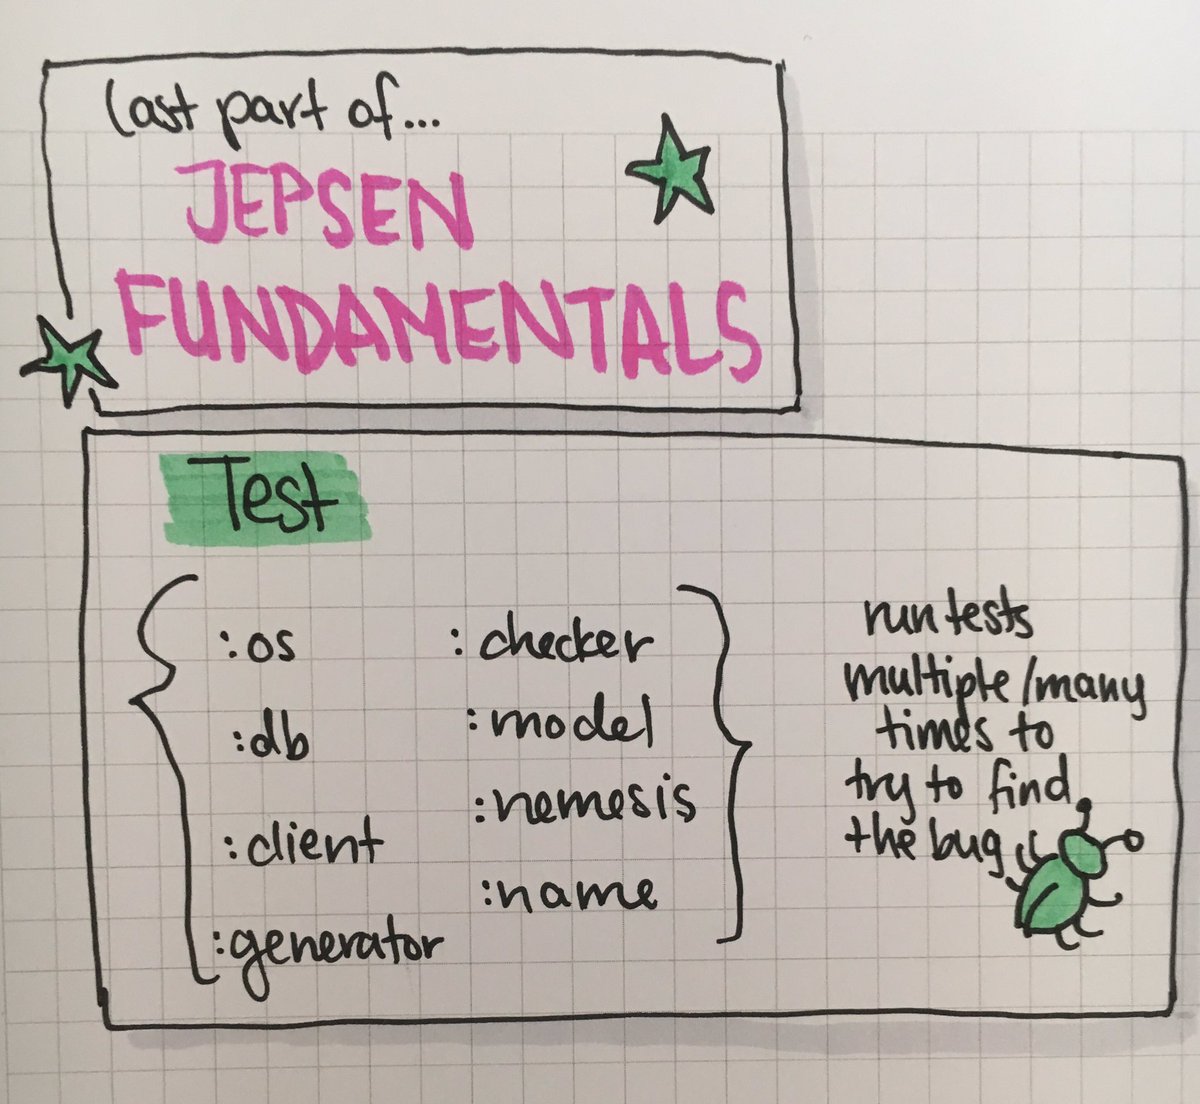 last part of...
JEPSEN
FUNDAMENTALS
Test
:os
:db
:client
:generator
:checker
:model
:nemesis
:name
run tests
multiple/many
times to
try to find
the bug